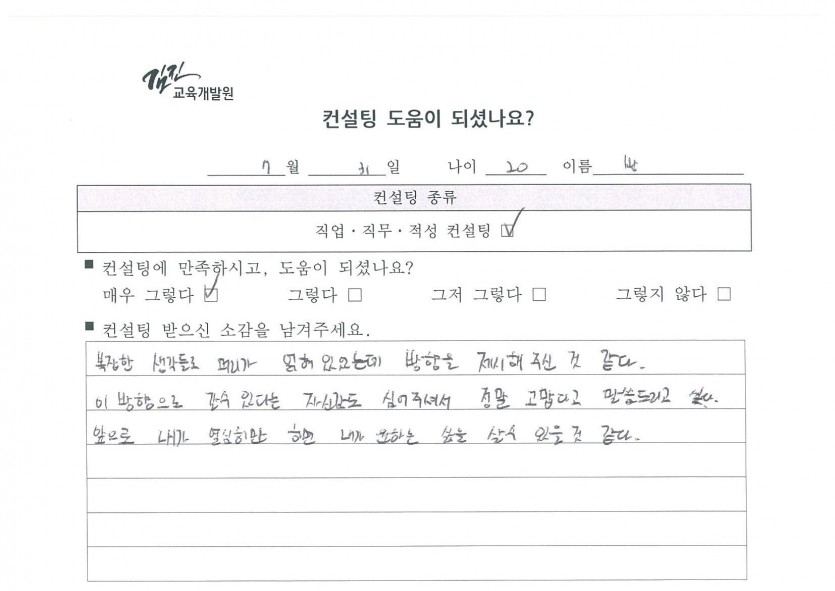 김진
교육개발원
컨설팅 도움이 되셨나요?
7월 31일 나이 20 이름 박
컨설팅 종류
직업 · 직무 · 적성 컨설팅 ☑
■ 컨설팅에 만족하시고, 도움이 되셨나요?
매우 그렇다 ☑ 그렇다 □ 그저 그렇다 □ 그렇지 않다 □
■ 컨설팅 받으신 소감을 남겨주세요.
복잡한 생각들로 머리가 얽혀 있었는데 방향을 제시해 주신 것 같다.
이 방향으로 갈수 있다는 자신감도 심어주셔서 정말 고맙다고 말씀드리고 싶다.
앞으로 내가 열심히만 하면 내가 원하는 삶을 살수 있을 것 같다.